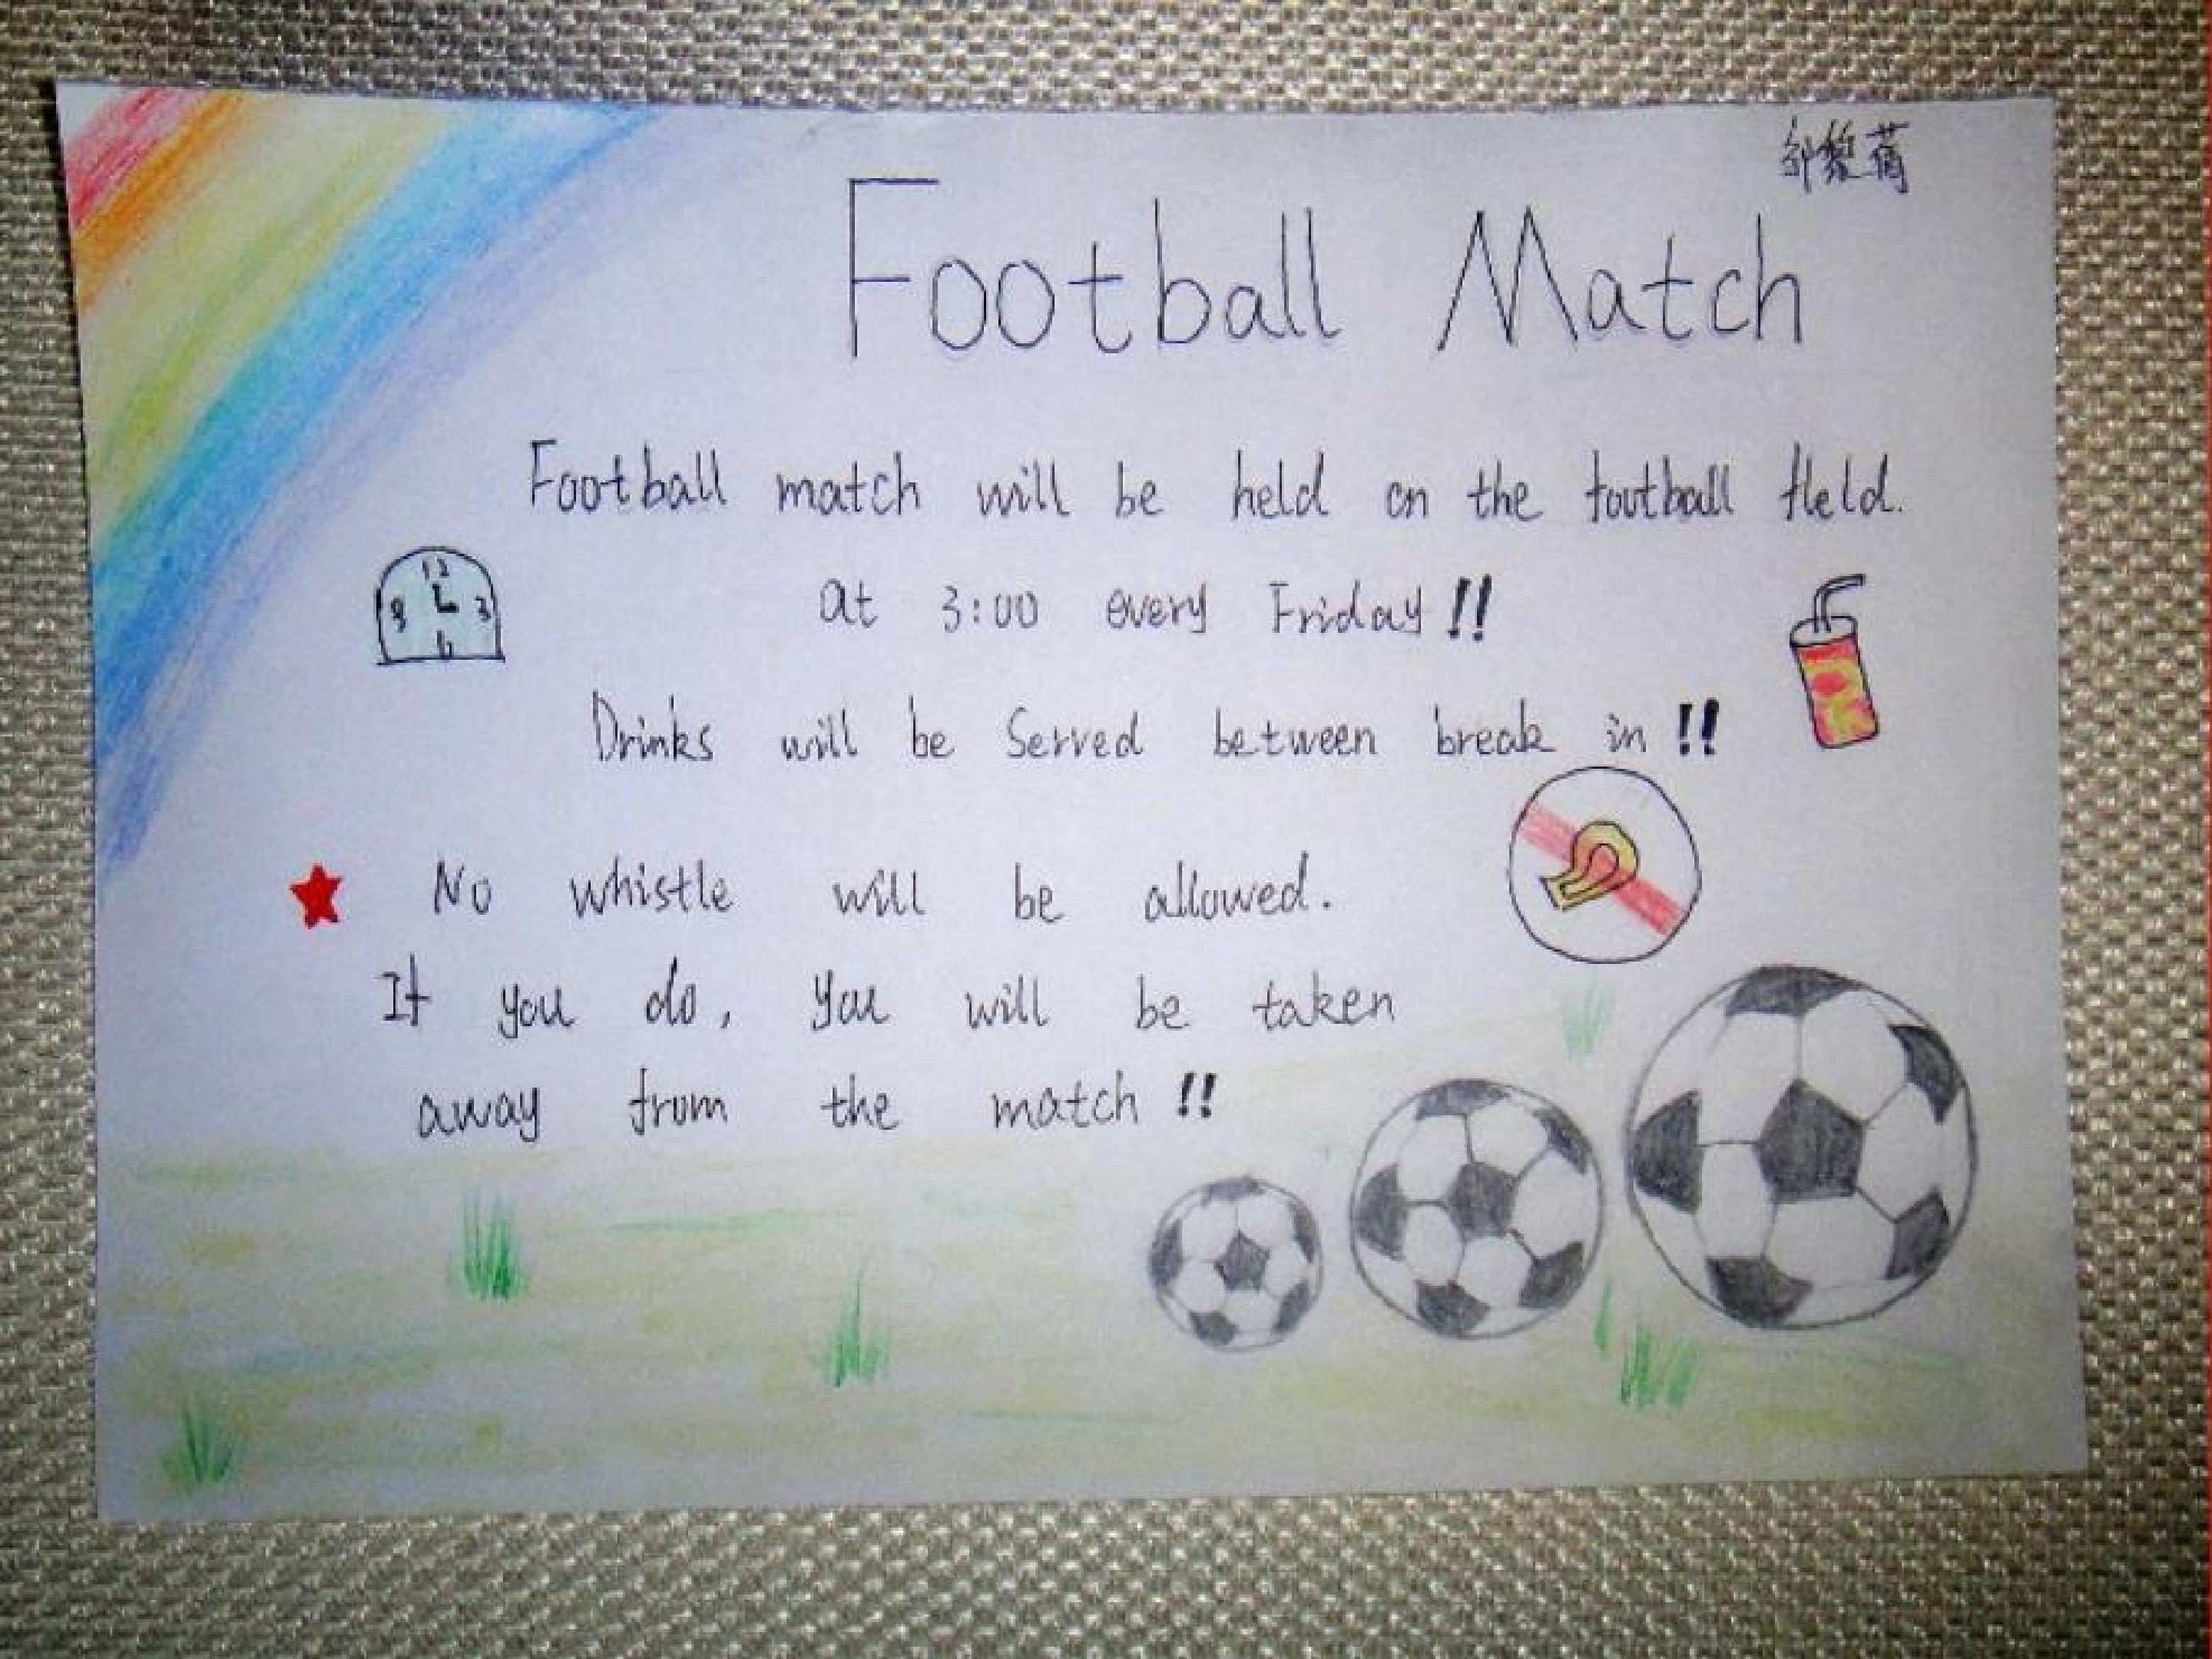 邹黎蓢
Football Match
Football match will be held on the football field.
at 3:00 every Friday!!
12
9 3
6
Drinks will be Served between break in!!
No whistle will be allowed.
If you do, you will be taken
away from the match!!